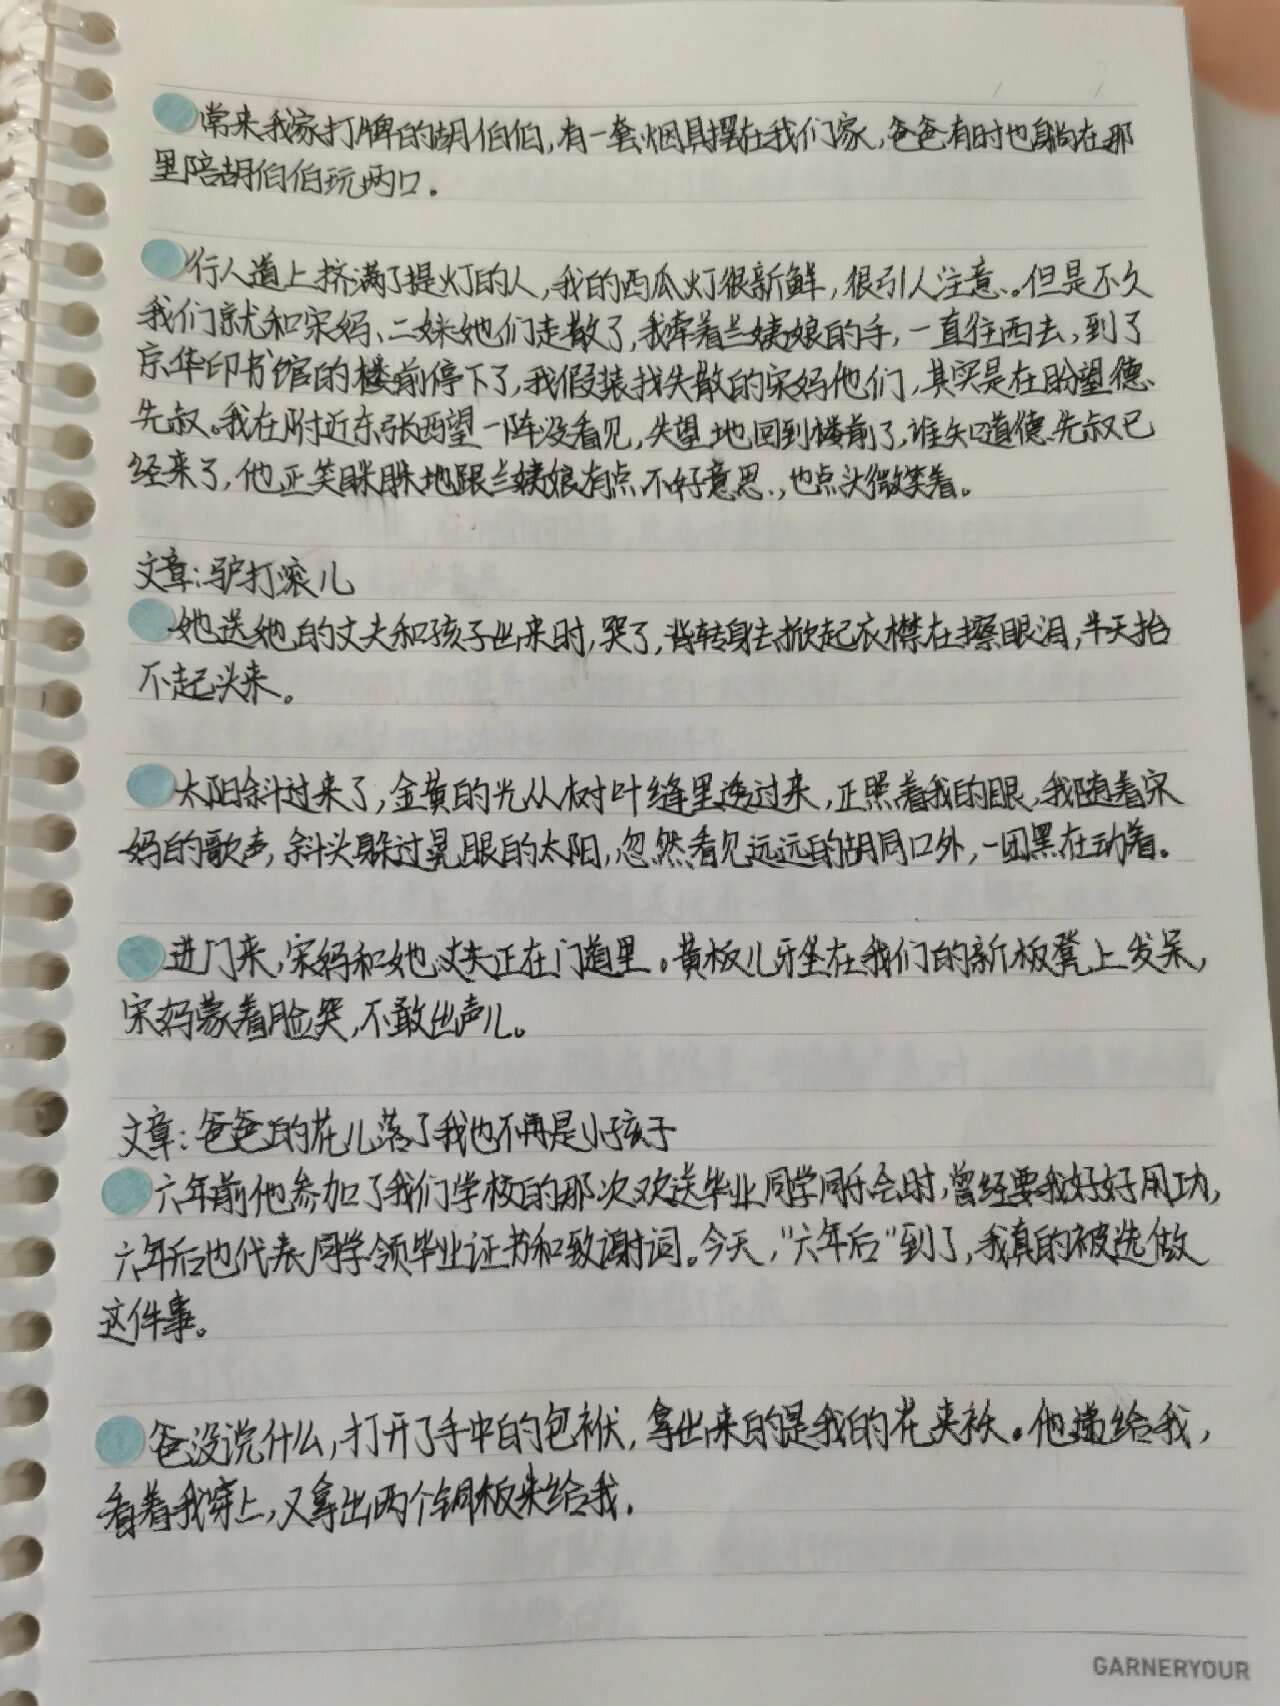 常来我家打牌的胡伯伯,有一套烟具摆在我们家,爸爸有时也躺在那
里陪胡伯伯玩两口.
行人道上挤满了提灯的人,我的西瓜灯很新鲜,很引人注意。但是不久
我们就和宋妈、二妹她们走散了,我牵着兰姨娘的手,一直往西去,到了
京华印书馆的楼前停下了,我假装找失散的宋妈他们,其实是在盼望德
先叔。我在附近东张西望一阵没看见,失望地回到楼前了,谁知道德先叔已
经来了,他正笑眯眯地跟兰姨娘有点不好意思,也点头微笑着。
文章:驴打滚儿
她送她的丈夫和孩子出来时,哭了,背转身去掀起衣襟在擦眼泪,半天抬
不起头来。
太阳斜过来了,金黄的光从树叶缝里透过来,正照着我的眼,我随着宋
妈的歌声,斜头躲过晃眼的太阳,忽然看见远远的胡同口外,一团黑在动着。
进门来,宋妈和她丈夫正在门道里。黄板儿牙坐在我们的新板凳上发呆,
宋妈蒙着脸哭,不敢出声儿。
文章:爸爸的花儿落了我也不再是小孩子
六年前他参加了我们学校的那次欢送毕业同学同乐会时,曾经要我好好用功,
六年后也代表同学领毕业证书和致谢词。今天,"六年后"到了,我真的被选做
这件事。
爸没说什么,打开了手中的包袱,拿出来的是我的花夹袄。他递给我,
看着我穿上,又拿出两个铜板来给我.
GARNERYOUR